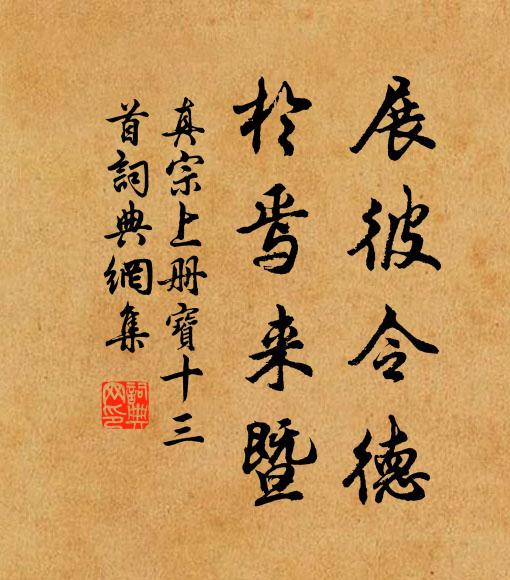 展彼令德
於焉来暨
真宗上册寶十三
首詞典網集
詞典
网印